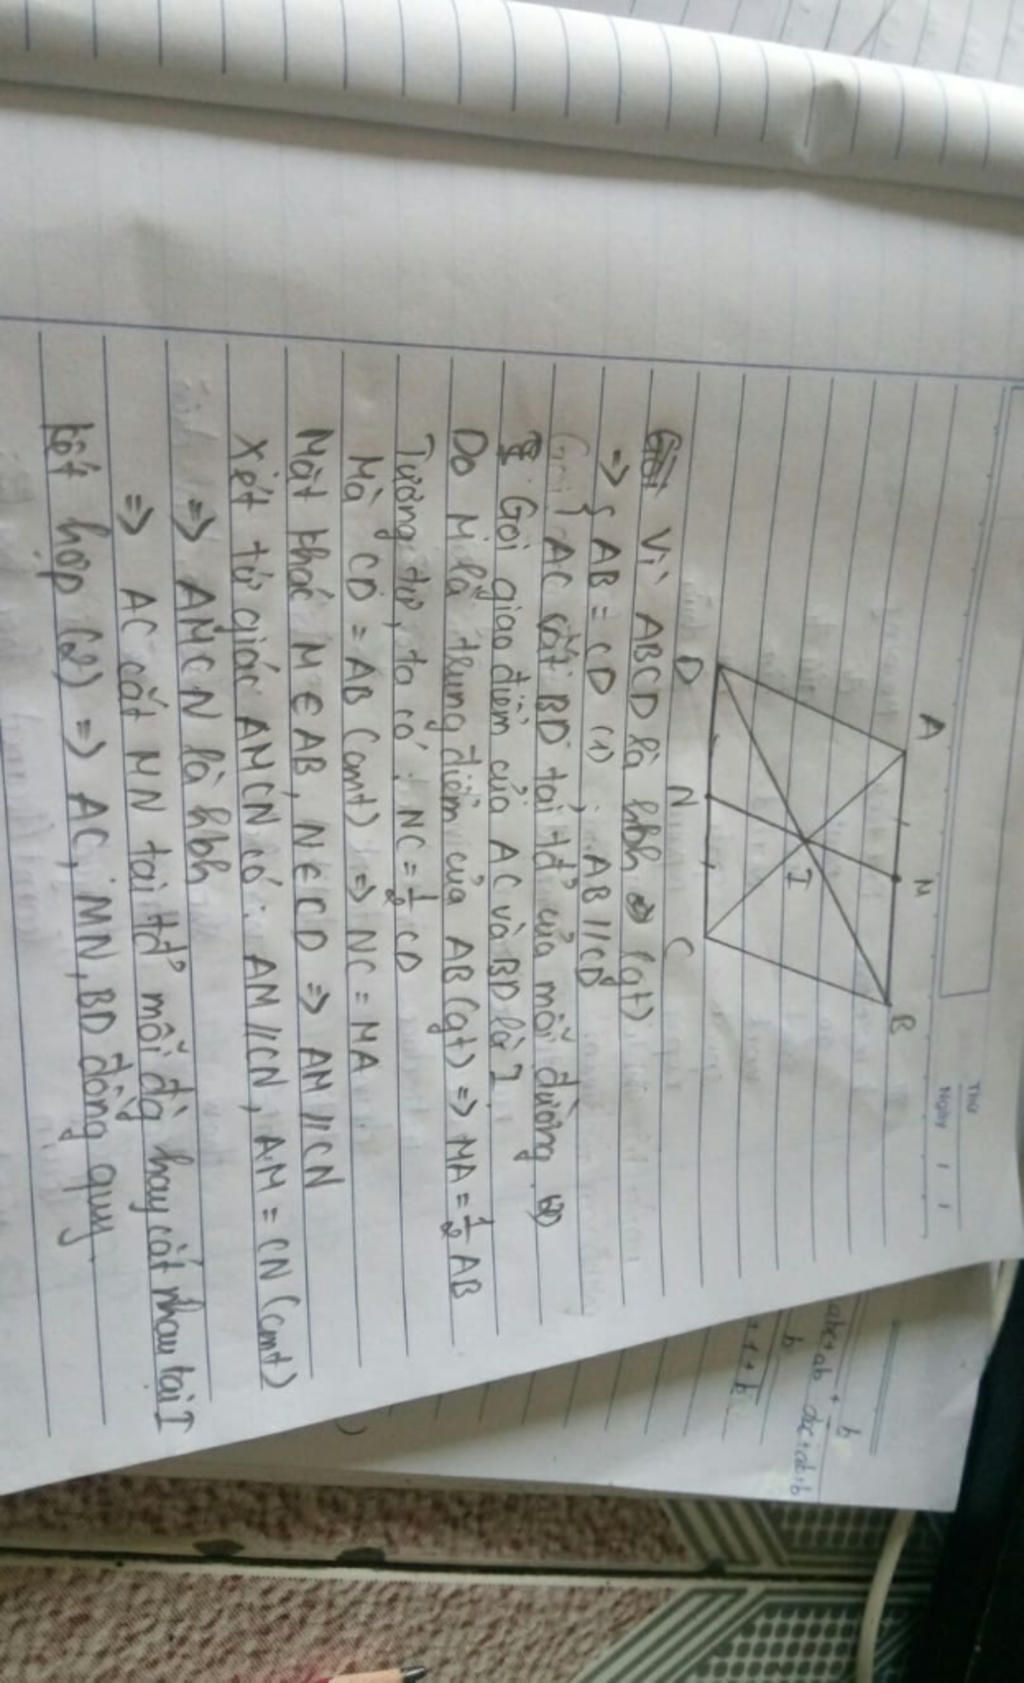 Thứ
Ngày / /
A M B
I
D N C
Vì ABCD là hbh (gt)
=> { AB = CD (1) ; AB // CD
AC cắt BD tại tđ' của mỗi đường (2)
Gọi giao điểm của AC và BD là I
Do M là trung điểm của AB (gt) => MA = 1/2 AB
Tương tự, ta có: NC = 1/2 CD
Mà CD = AB (cmt) => NC = MA
Mặt khác M ∈ AB, N ∈ CD => AM // CN
Xét tứ giác AMCN có: AM // CN, AM = CN (cmt)
=> AMCN là hbh
=> AC cắt MN tại tđ' mỗi đg hay cắt nhau tại I
Kết hợp (2) => AC, MN, BD đồng quy.